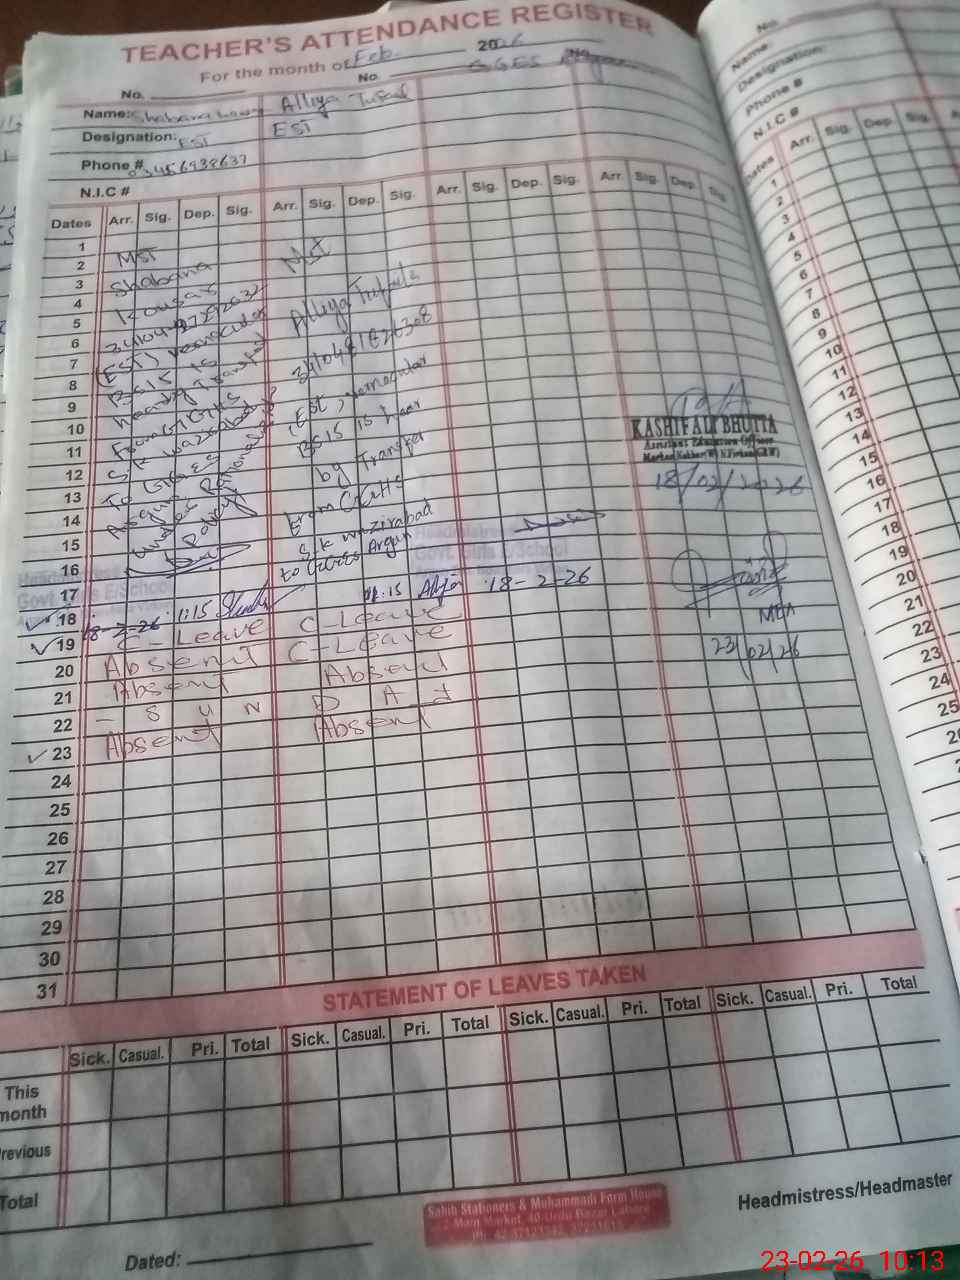 TEACHER'S ATTENDANCE REGISTER
For the month of Feb. 2026
No. No. GGES
Name: Shabana Alliya Tufail
Designation: EST EST
Phone # 03456938637
N.I.C #
Dates Arr. Sig. Dep. Sig. Arr. Sig. Dep. Sig. Arr. Sig. Dep. Sig. Arr. Sig. Dep. Sig.
1
2
3
4
5
6
7
8
9
10
11
12
13
14
15
16
17
18
19
20
21
22
23
24
25
26
27
28
29
30
31
MST
Shabana
Kousar
(EST) vernacular
BS15 is
hearby Transfer
From GGHS
S.K wazirabad
To GGES
Argun
under Rationalization
Policy
MST
Alliya Tufail
(Est, vernacular
BS15 is hear
by Transfer
from GGHS
S.K wazirabad
to GGES Argun
KASHIF ALI BHUTTA
Assistant Education Officer
18/02/2026
Headmistress
Govt. Girls E/School
Headmistress
Govt. Girls E/School
18-2-26 1:15 11.15 18-2-26
C-Leave C-Leave
Absent C-Leave
Absent Absent
- S U N D A Y
Absent Absent
MEA
23/02/26
STATEMENT OF LEAVES TAKEN
Sick. Casual. Pri. Total Sick. Casual. Pri. Total Sick. Casual. Pri. Total Sick. Casual. Pri. Total
This
month
Previous
Total
Sahib Stationers & Muhammadi Form House
2-Main Market, 40-Urdu Bazar Lahore
Headmistress/Headmaster
Dated:
No.
Name:
Designation:
Phone #
N.I.C #
Dates Arr. Sig. Dep. Sig.
1
2
3
4
5
6
7
8
9
10
11
12
13
14
15
16
17
18
19
20
21
22
23
24
25
23-02-26 10:13